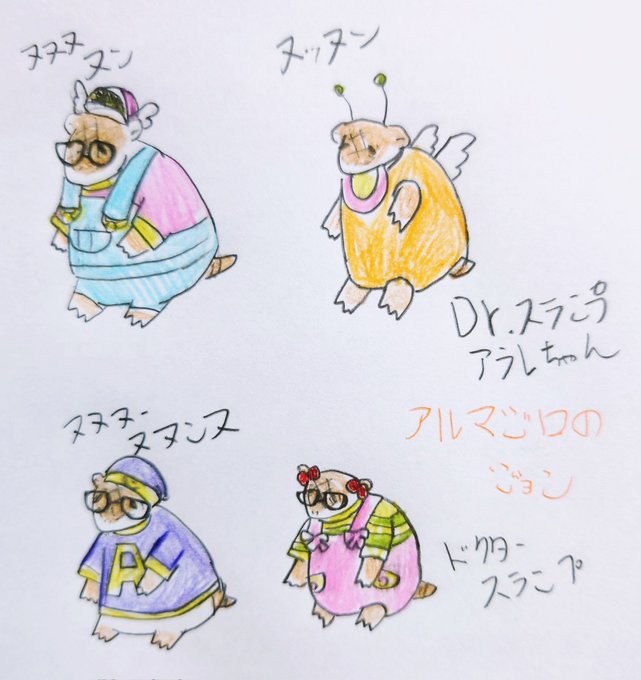 ヌヌヌ
ヌン
ヌッヌン
Dr.スランプ
アラレちゃん
ヌヌヌー
ヌヌンヌ
アルマジロの
ジョン
ドクター
スランプ
A